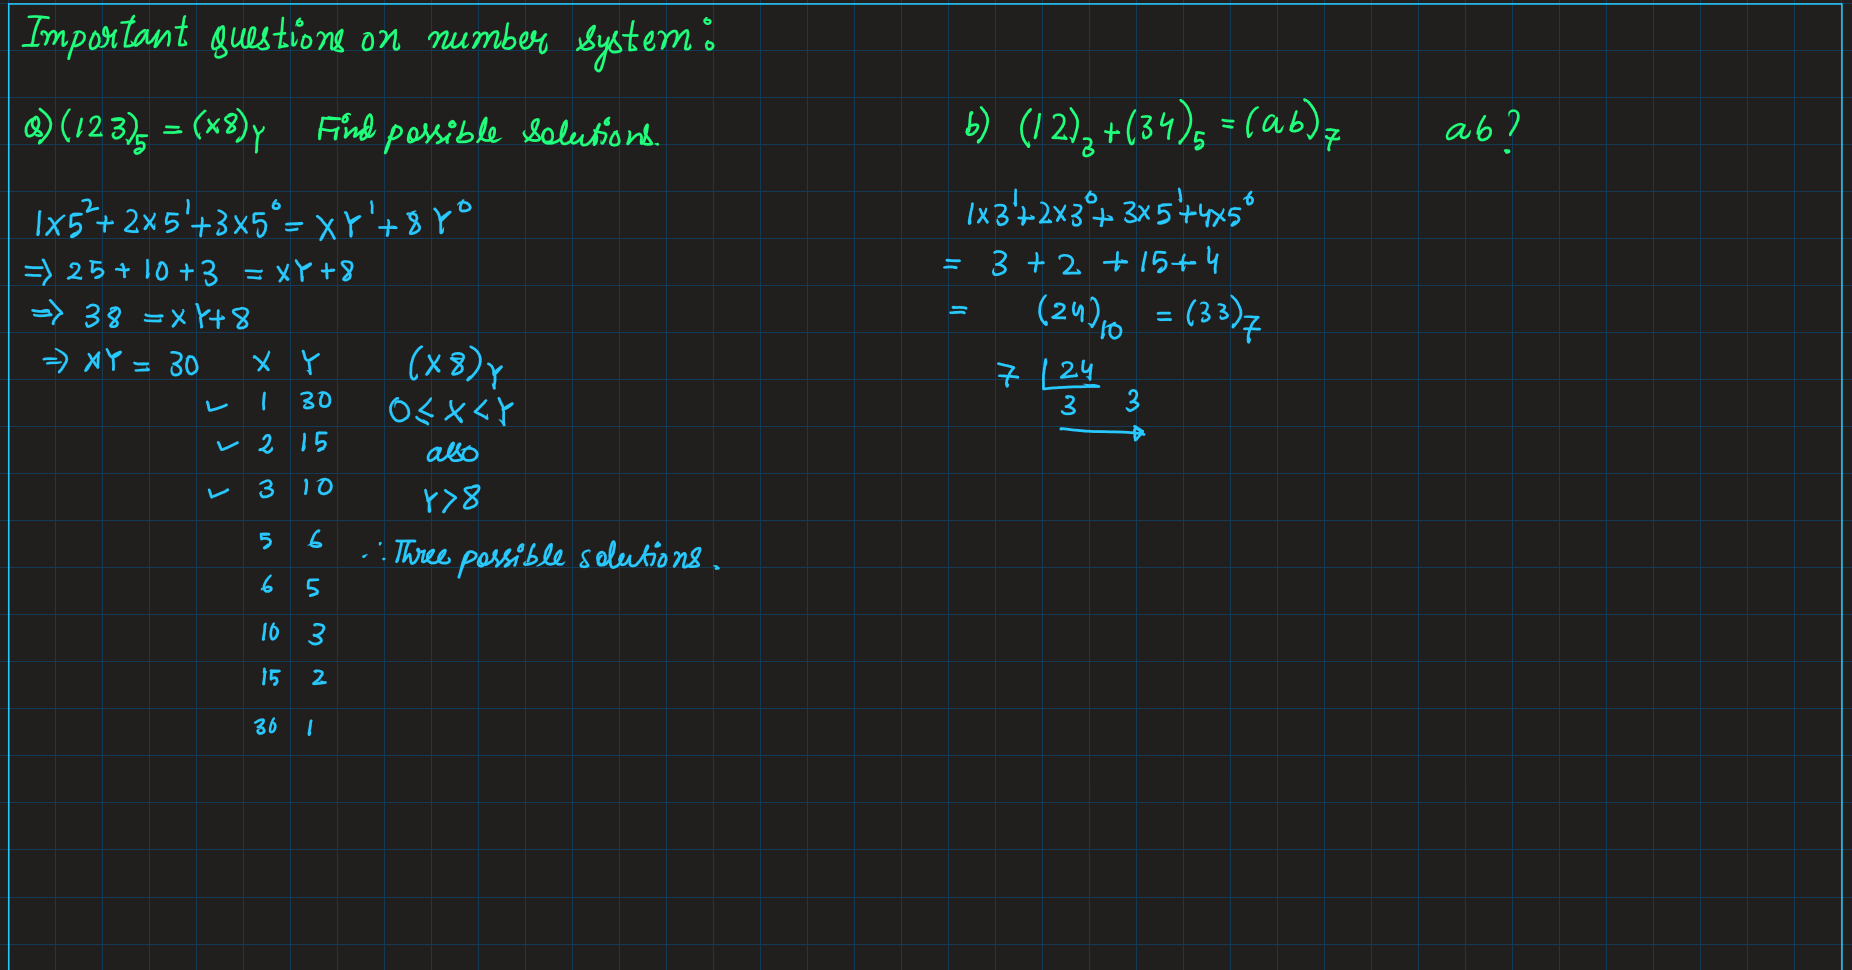 Important questions on number system:
Q) (123)₅ = (x8)Y Find possible solutions.
1×5²+2×5¹+3×5⁰ = XY¹+8Y⁰
⇒ 25+10+3 = XY+8
⇒ 38 = XY+8
⇒ XY = 30
X Y
✓ 1 30
✓ 2 15
✓ 3 10
5 6
6 5
10 3
15 2
30 1
(X8)Y
0≤X<Y
also
Y>8
∴ Three possible solutions.
b) (12)₃+(34)₅ = (ab)₇ ab?
1×3¹+2×3⁰+3×5¹+4×5⁰
= 3+2+15+4
= (24)₁₀ = (33)₇
7 | 24
3 3